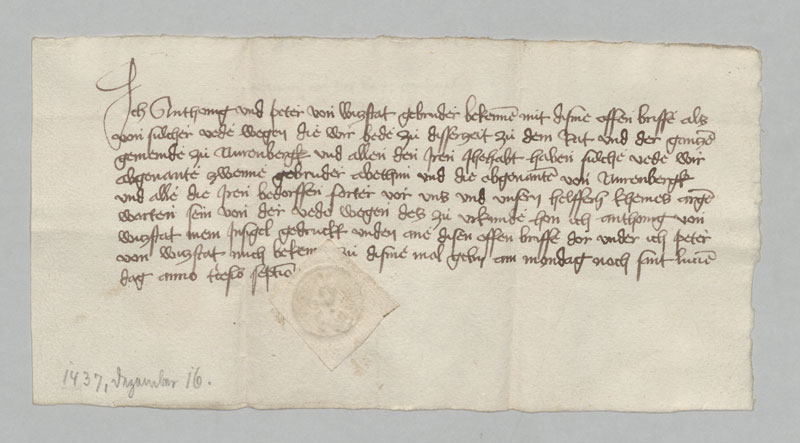 Ich Anthonig vnd peter von Wizstat gebruder bekenne mit disme offen briffe als
von sulcher vede wegen die wir bede zu disserzeit zu dem Rat vnd der gancze
gemeinde zu Nurenbergk vnd allen den Iren gehabt haben sulche vede wir
obgenante zweine gebruder abethun vnd die obgenanten von Nurenbergk
vnd alle die Iren bedorffen forter vor vns vnd vnsern helffern kheines args
warten sein von der vede wegen des zu vrkunde hon ich anthonig von
Wizstat mein Insigel gedruckt vnden ane disen offen briffe dor vnder ich peter
von Wizstat mich beken zu disme mol gebn am mondag noch sant lucie
dag anno septimo
1437, Dezember 16.